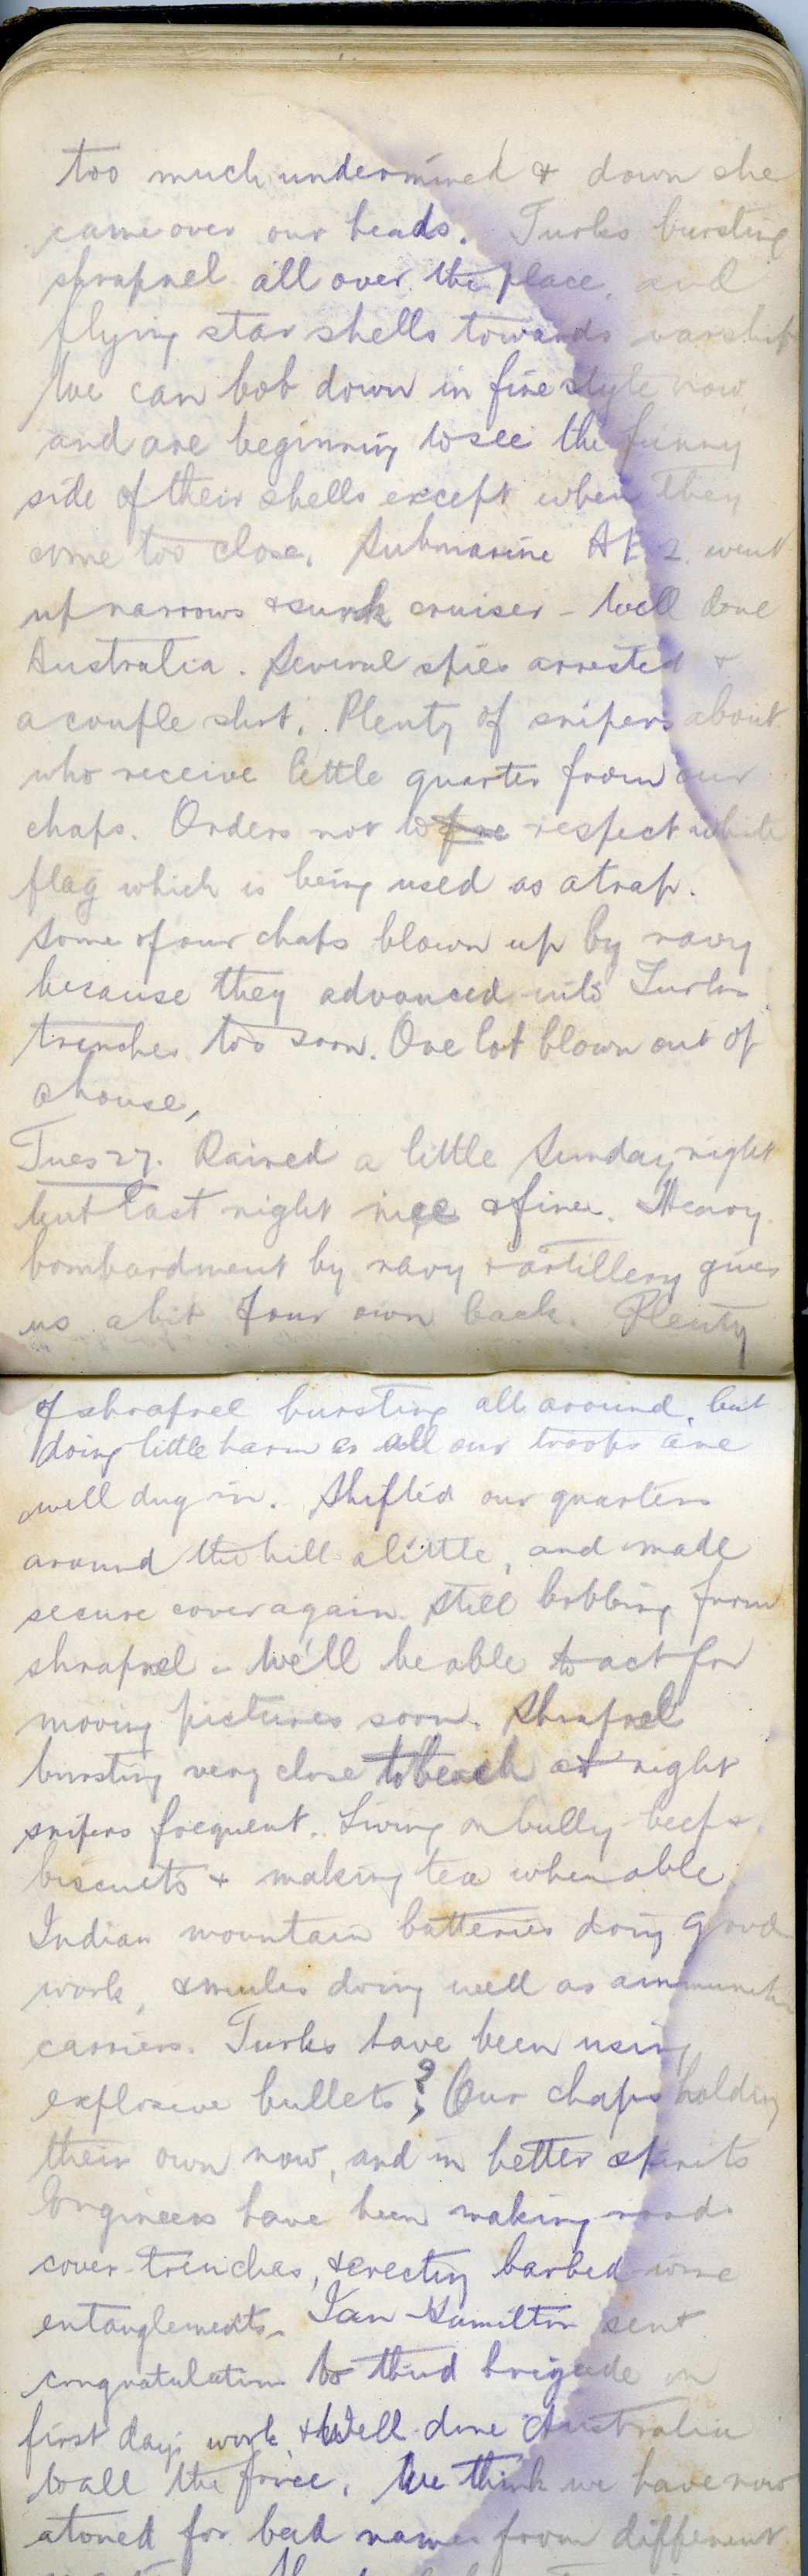 too much undermined & down she
came over our heads. Turks bursting
shrapnel all over the place, and
flying star shells towards warships
We can bob down in fine style now
and are beginning to see the funny
side of their shells except when they
come too close. Submarine AE 2 went
up narrows & sunk cruiser - Well done
Australia. Several spies arrested &
a couple shot. Plenty of snipers about
who receive little quarter from our
chaps. Orders not to respect white
flag which is being used as a trap.
Some of our chaps blown up by navy
because they advanced into Turks
trenches too soon. One lot blown out of
a house,
Tues 27. Rained a little Sunday night
but last night nice & fine. Heavy
bombardment by navy & artillery gives
us a bit of our own back. Plenty
of shrapnel bursting all around, but
doing little harm as all our troops are
well dug in. Shifted our quarters
around the hill a little, and made
secure cover again. Still bobbing from
shrapnel - We'll be able to act for
moving pictures soon. Shrapnel
bursting very close to beach at night
snipers frequent. Living on bully beef &
biscuits & making tea when able
Indian mountain batteries doing good
work, & mules doing well as ammunition
carriers. Turks have been using
explosive bullets? ; Our chaps holding
their own now, and in better spirits
Engineers have been making roads
cover trenches, & erecting barbed wire
entanglements. Ian Hamilton sent
congratulations to third brigade on
first days work, & Well done Australia
to all the force. We think we have now
atoned for bad names from different